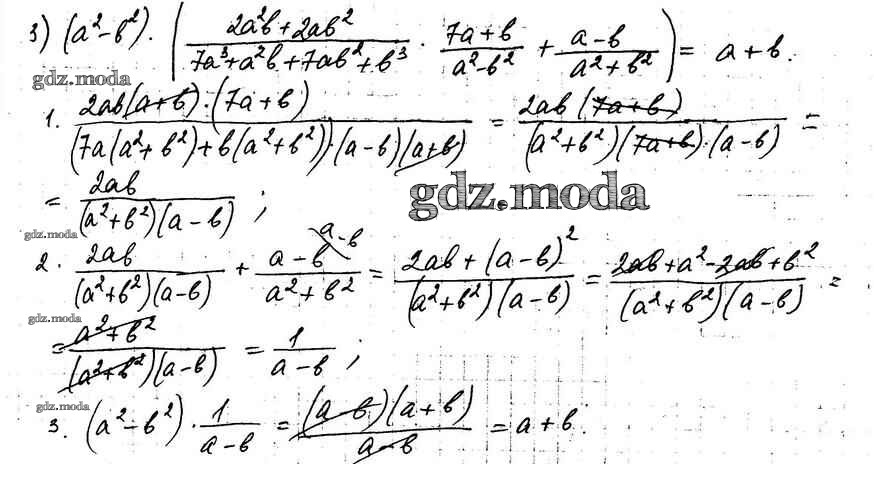 3) (a²-b²)·((2a²b+2ab²)/(7a³+a²b+7ab²+b³) · (7a+b)/(a²-b²) + (a-b)/(a²+b²)) = a+b.
gdz.moda
1. (2ab(a+b)·(7a+b))/((7a(a²+b²)+b(a²+b²))·(a-b)(a+b)) = (2ab(7a+b))/((a²+b²)(7a+b)·(a-b)) =
= 2ab/((a²+b²)(a-b)) ;
gdz.moda
gdz.moda
2. 2ab/((a²+b²)(a-b)) + (a-b)/(a²+b²) ^a-b = (2ab+(a-b)²)/((a²+b²)(a-b)) = (2ab+a²-2ab+b²)/((a²+b²)(a-b)) =
gdz.moda
= (a²+b²)/((a²+b²)(a-b)) = 1/(a-b) ;
gdz.moda
3. (a²-b²)·1/(a-b) = ((a-b)(a+b))/(a-b) = a+b.